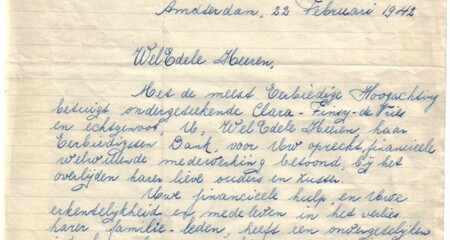 Amsterdam, 22 Februari 1942
WelEdele Heeren,
Met de meest Eerbiedige Hoogachting
betuigt ondergeteekende Clara - Finsy - de Vries
en echtgenoot, U, WelEdele Heeren, haar
Eerbiedigsten Dank, voor Uw oprecht, financieele
welwillende medewerking betoond, bij het
overlijden harer lieve ouders en zuster.
Uwe financieele hulp, en Uwe
erkentelijkheid en medeleven in het verlies
harer familie-leden, heeft een onvergetelijken